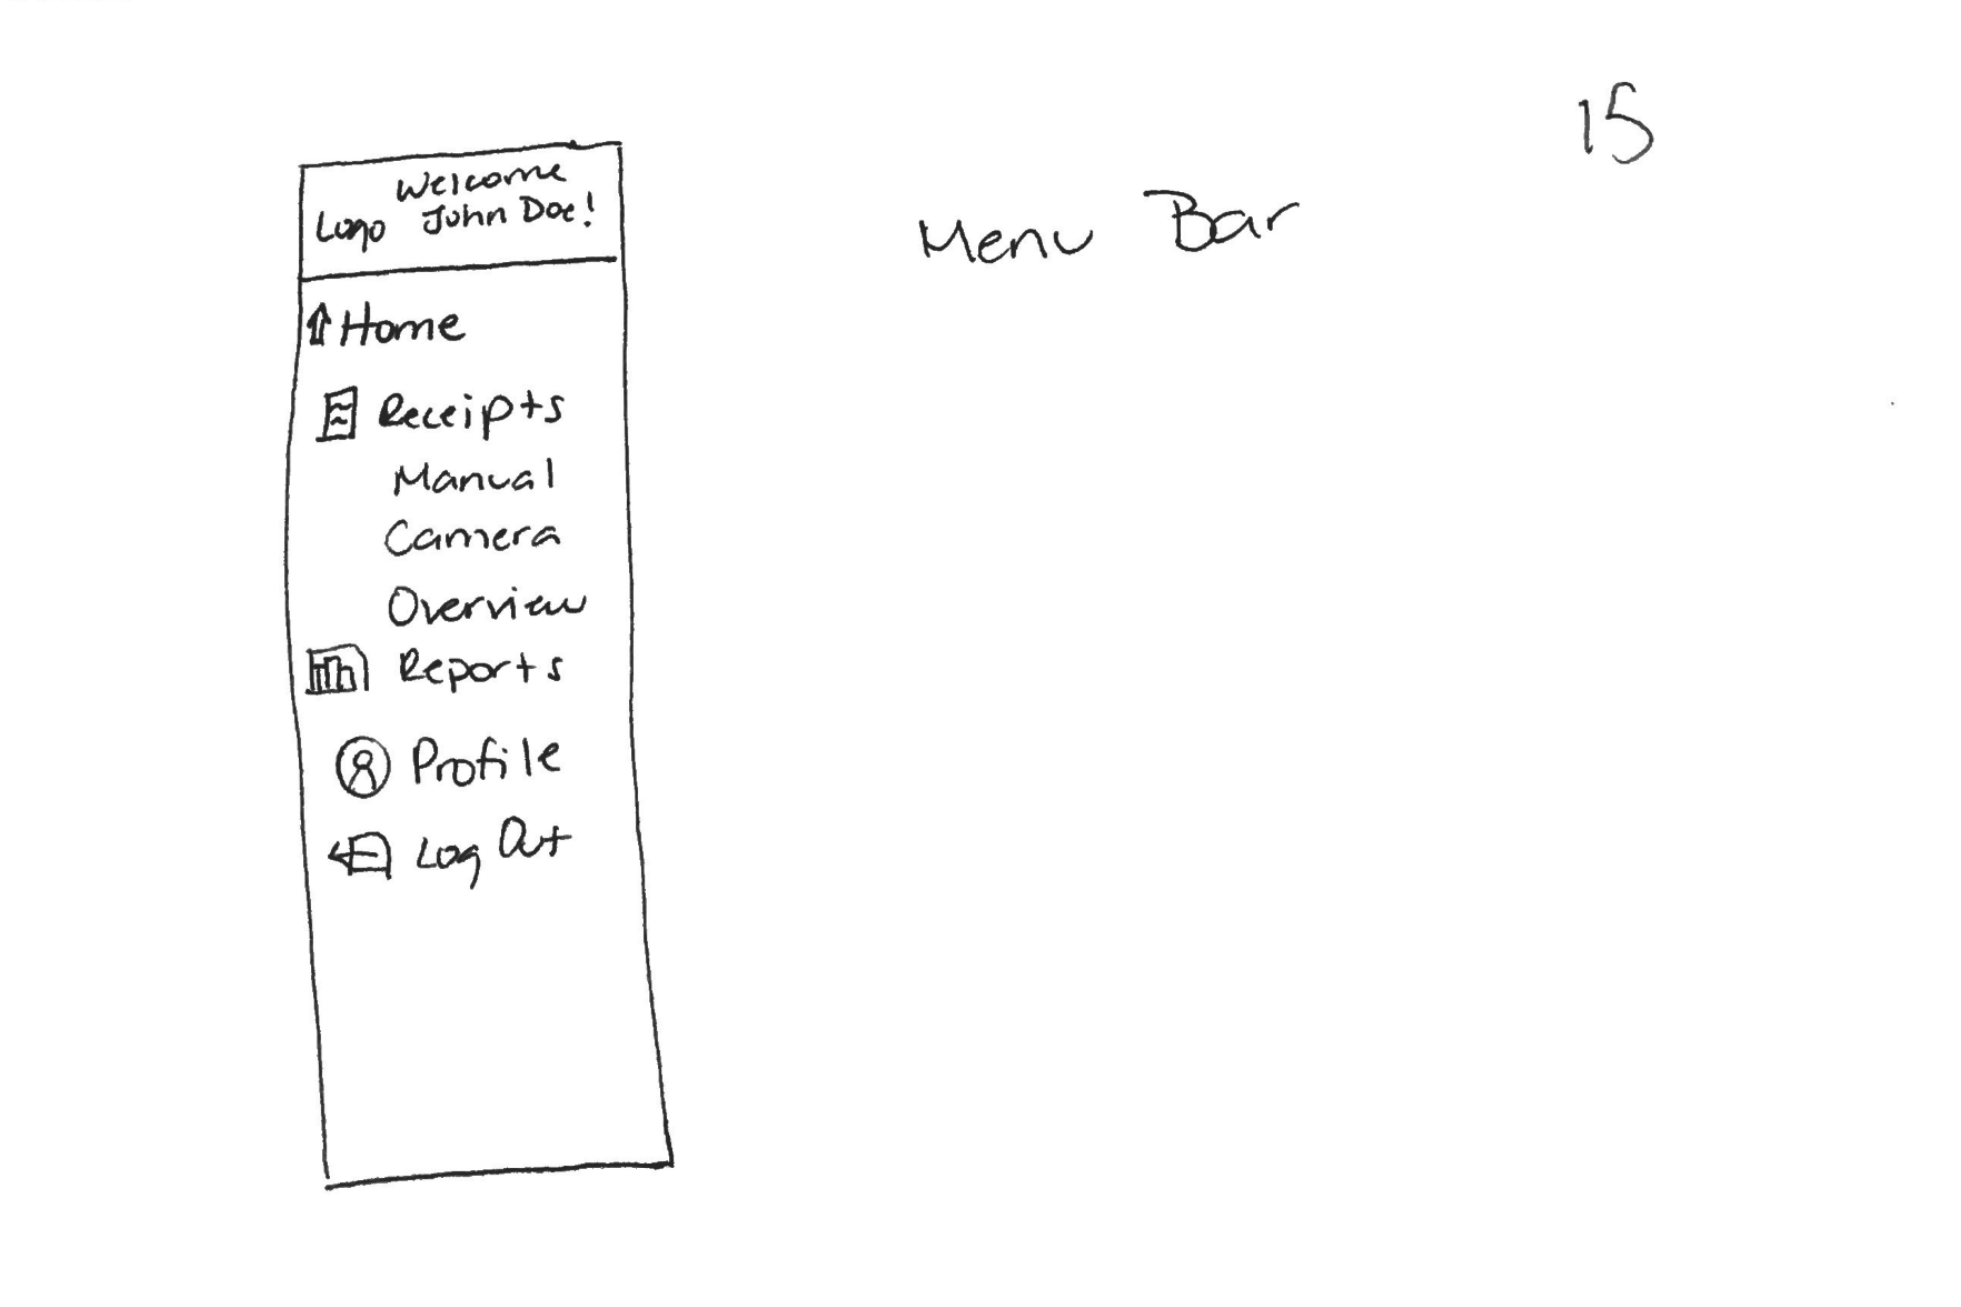 15
Menu Bar
Welcome
Logo John Doe!
Home
Receipts
Manual
Camera
Overview
Reports
Profile
Log Out